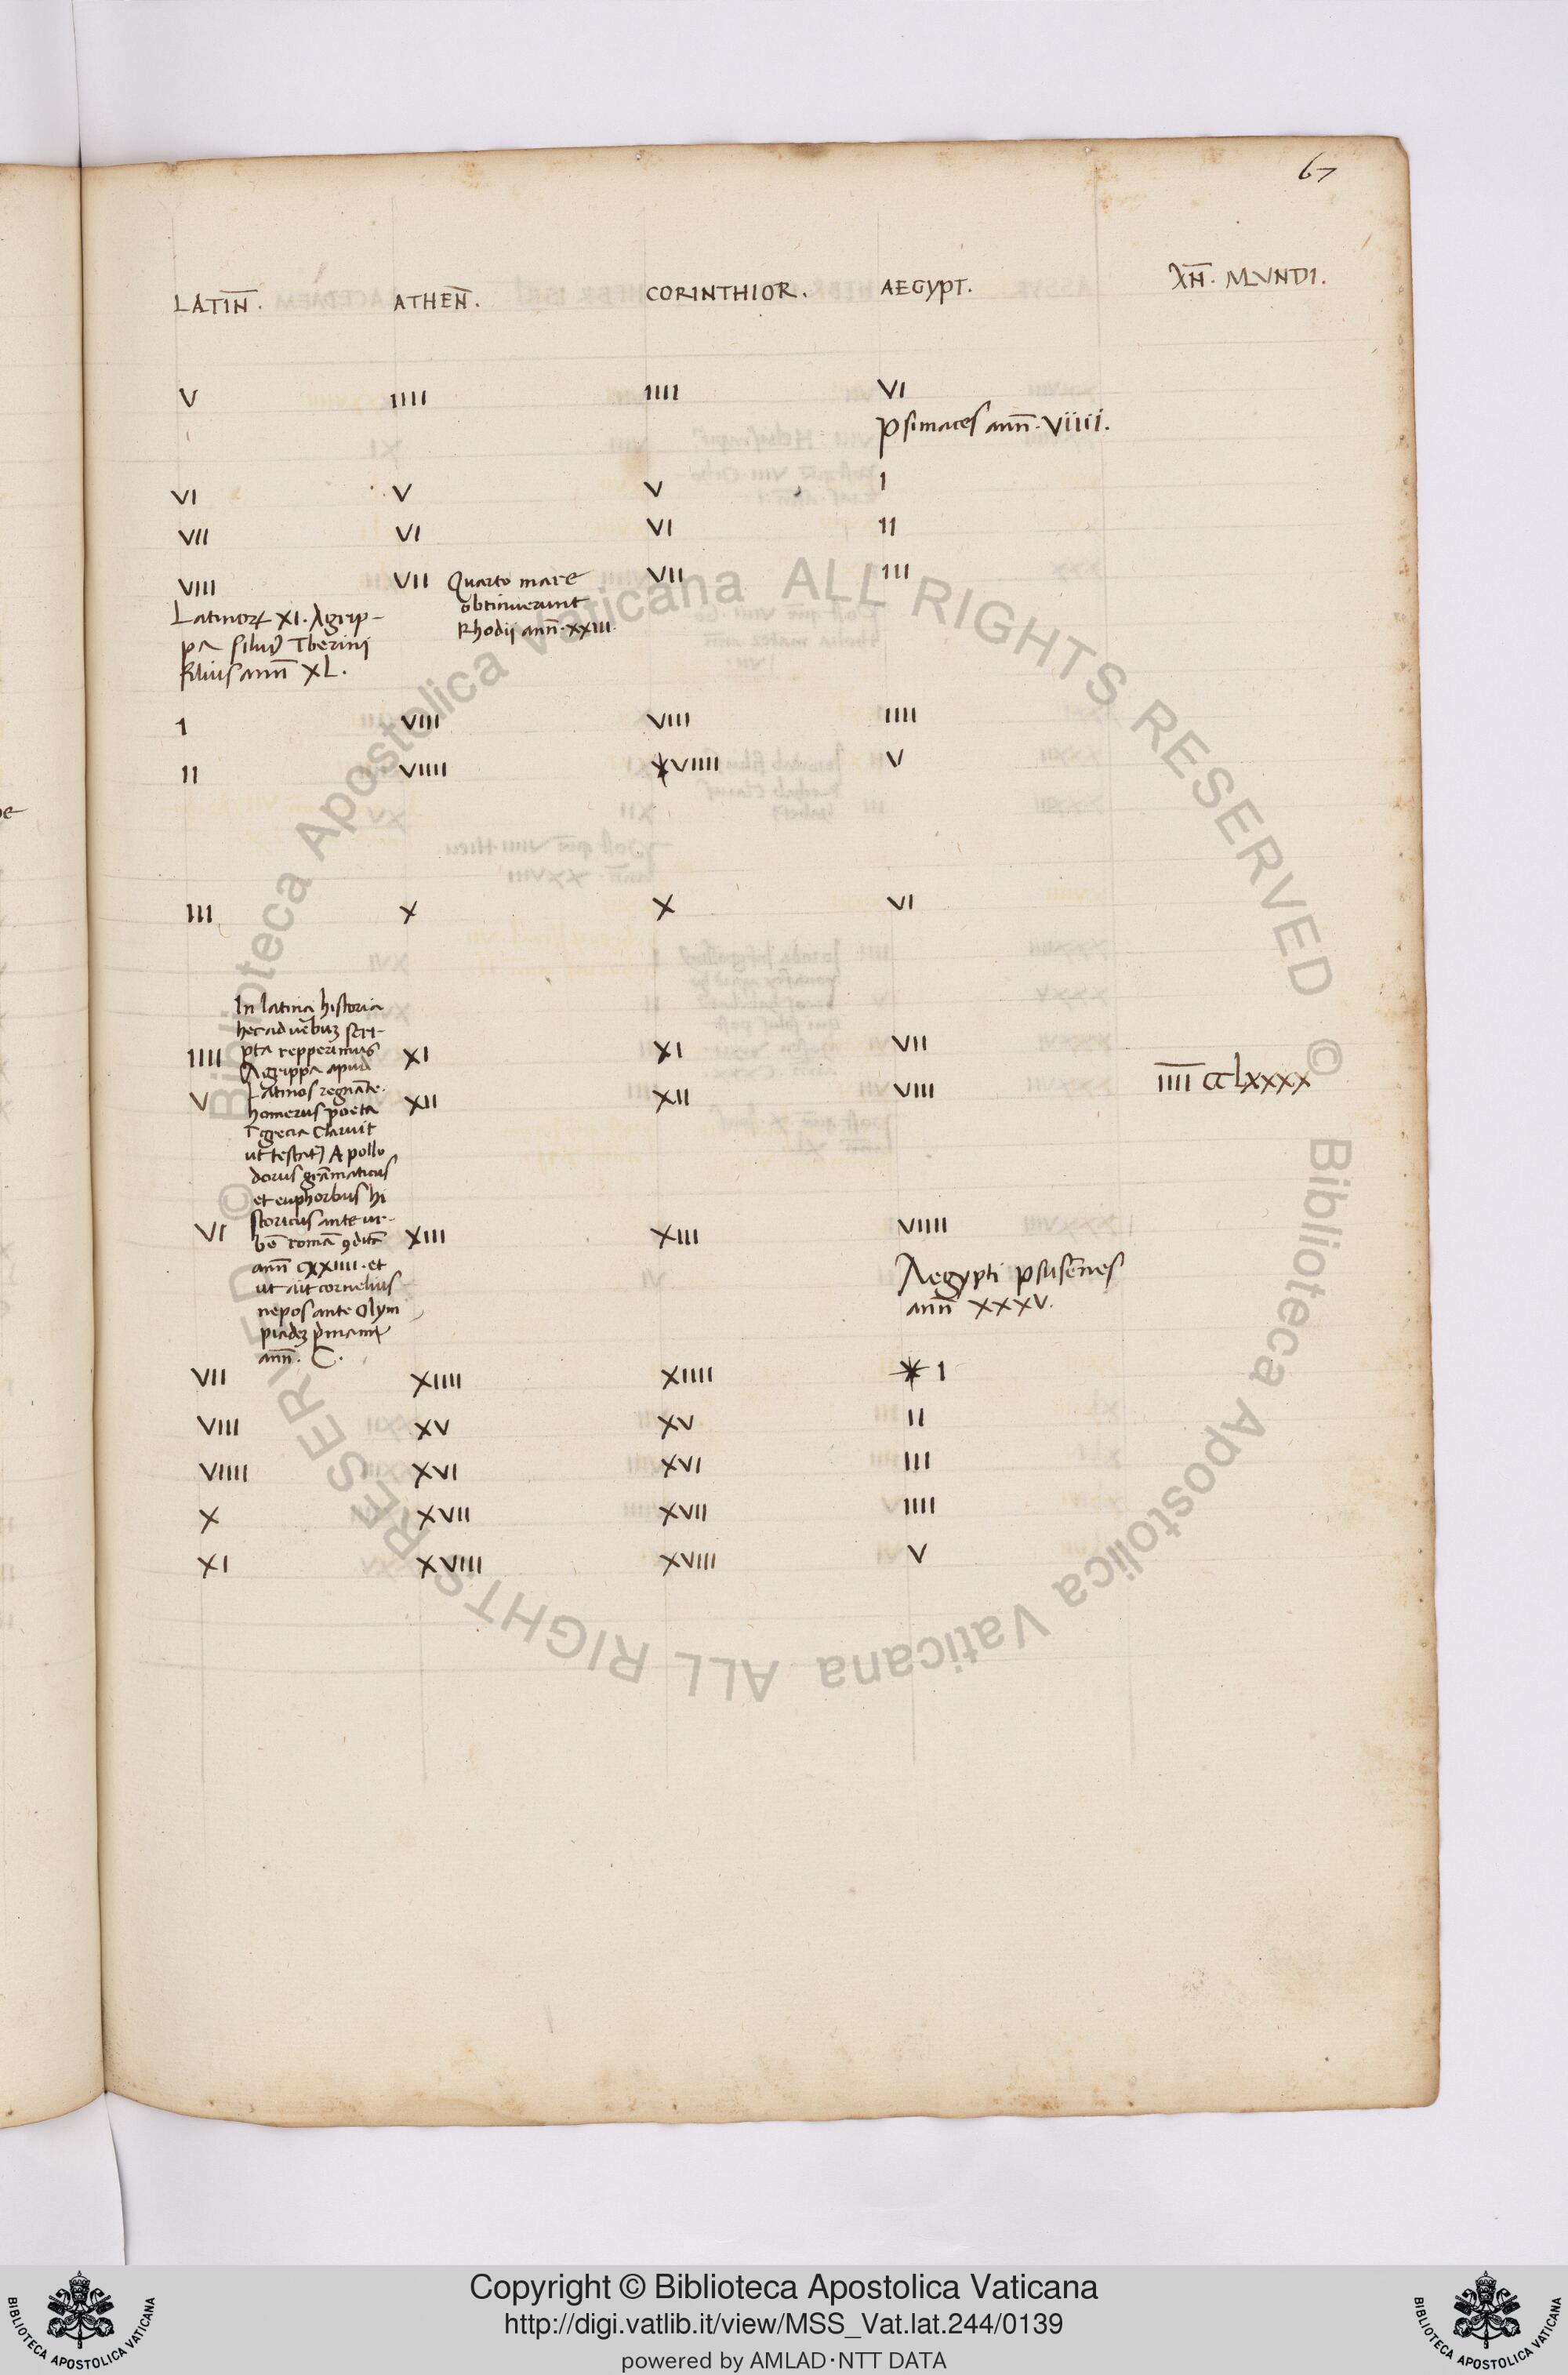 67
LATIN̅. ATHEN̅. CORINTHIOR. AEGYPT. AN̅. MVNDI.
V IIII IIII VI
Psimaces ann̅. VIIII.
VI V V I
VII VI VI II
VIII VII Quarto mare VII III
obtinuerunt
Rhodii ann̅. XXIII.
Latinoꝝ XI. Agrip-
pa siluii Tiberini
filius ann̅ XL.
I VIII VIII IIII
II VIIII XVIIII V
III X X VI
In latina historia
hec ad uerbuꝫ scri-
IIII pta repperimus XI XI VII
Agrippa apud
V Latinos regna̅te. XII XII VIII I̅I̅I̅I̅ CCLXXXX
homerus poeta
I grecia claruit
ut testatʳ Apollo
dorus gra̅maticus
et euphorbus hi
VI storicus ante ur- XIII XIII VIIII
be̅ roma̅ ꝯdita̅
ann̅ CXXIIII. et
ut ait cornelius
nepos ante olym
piadeꝫ primam
ann̅. C.
Aegypti psuse̅nes
ann̅ XXXV.
VII XIIII XIIII * I
VIII XV XV II
VIIII XVI XVI III
X XVII XVII IIII
XI XVIII XVIII V
© Biblioteca Apostolica Vaticana ALL RIGHTS RESERVED © Biblioteca Apostolica Vaticana ALL RIGHTS RESERVED
Copyright © Biblioteca Apostolica Vaticana
http://digi.vatlib.it/view/MSS_Vat.lat.244/0139
powered by AMLAD·NTT DATA
BIBLIOTECA APOSTOLICA VATICANA
BIBLIOTECA APOSTOLICA VATICANA